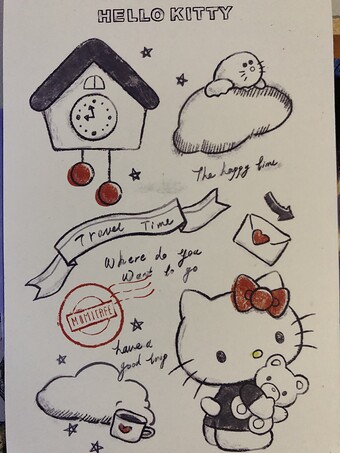 HELLO KITTY
The happy time
Travel Time
Where do you
want to go
MOMITREE
have a
good trip